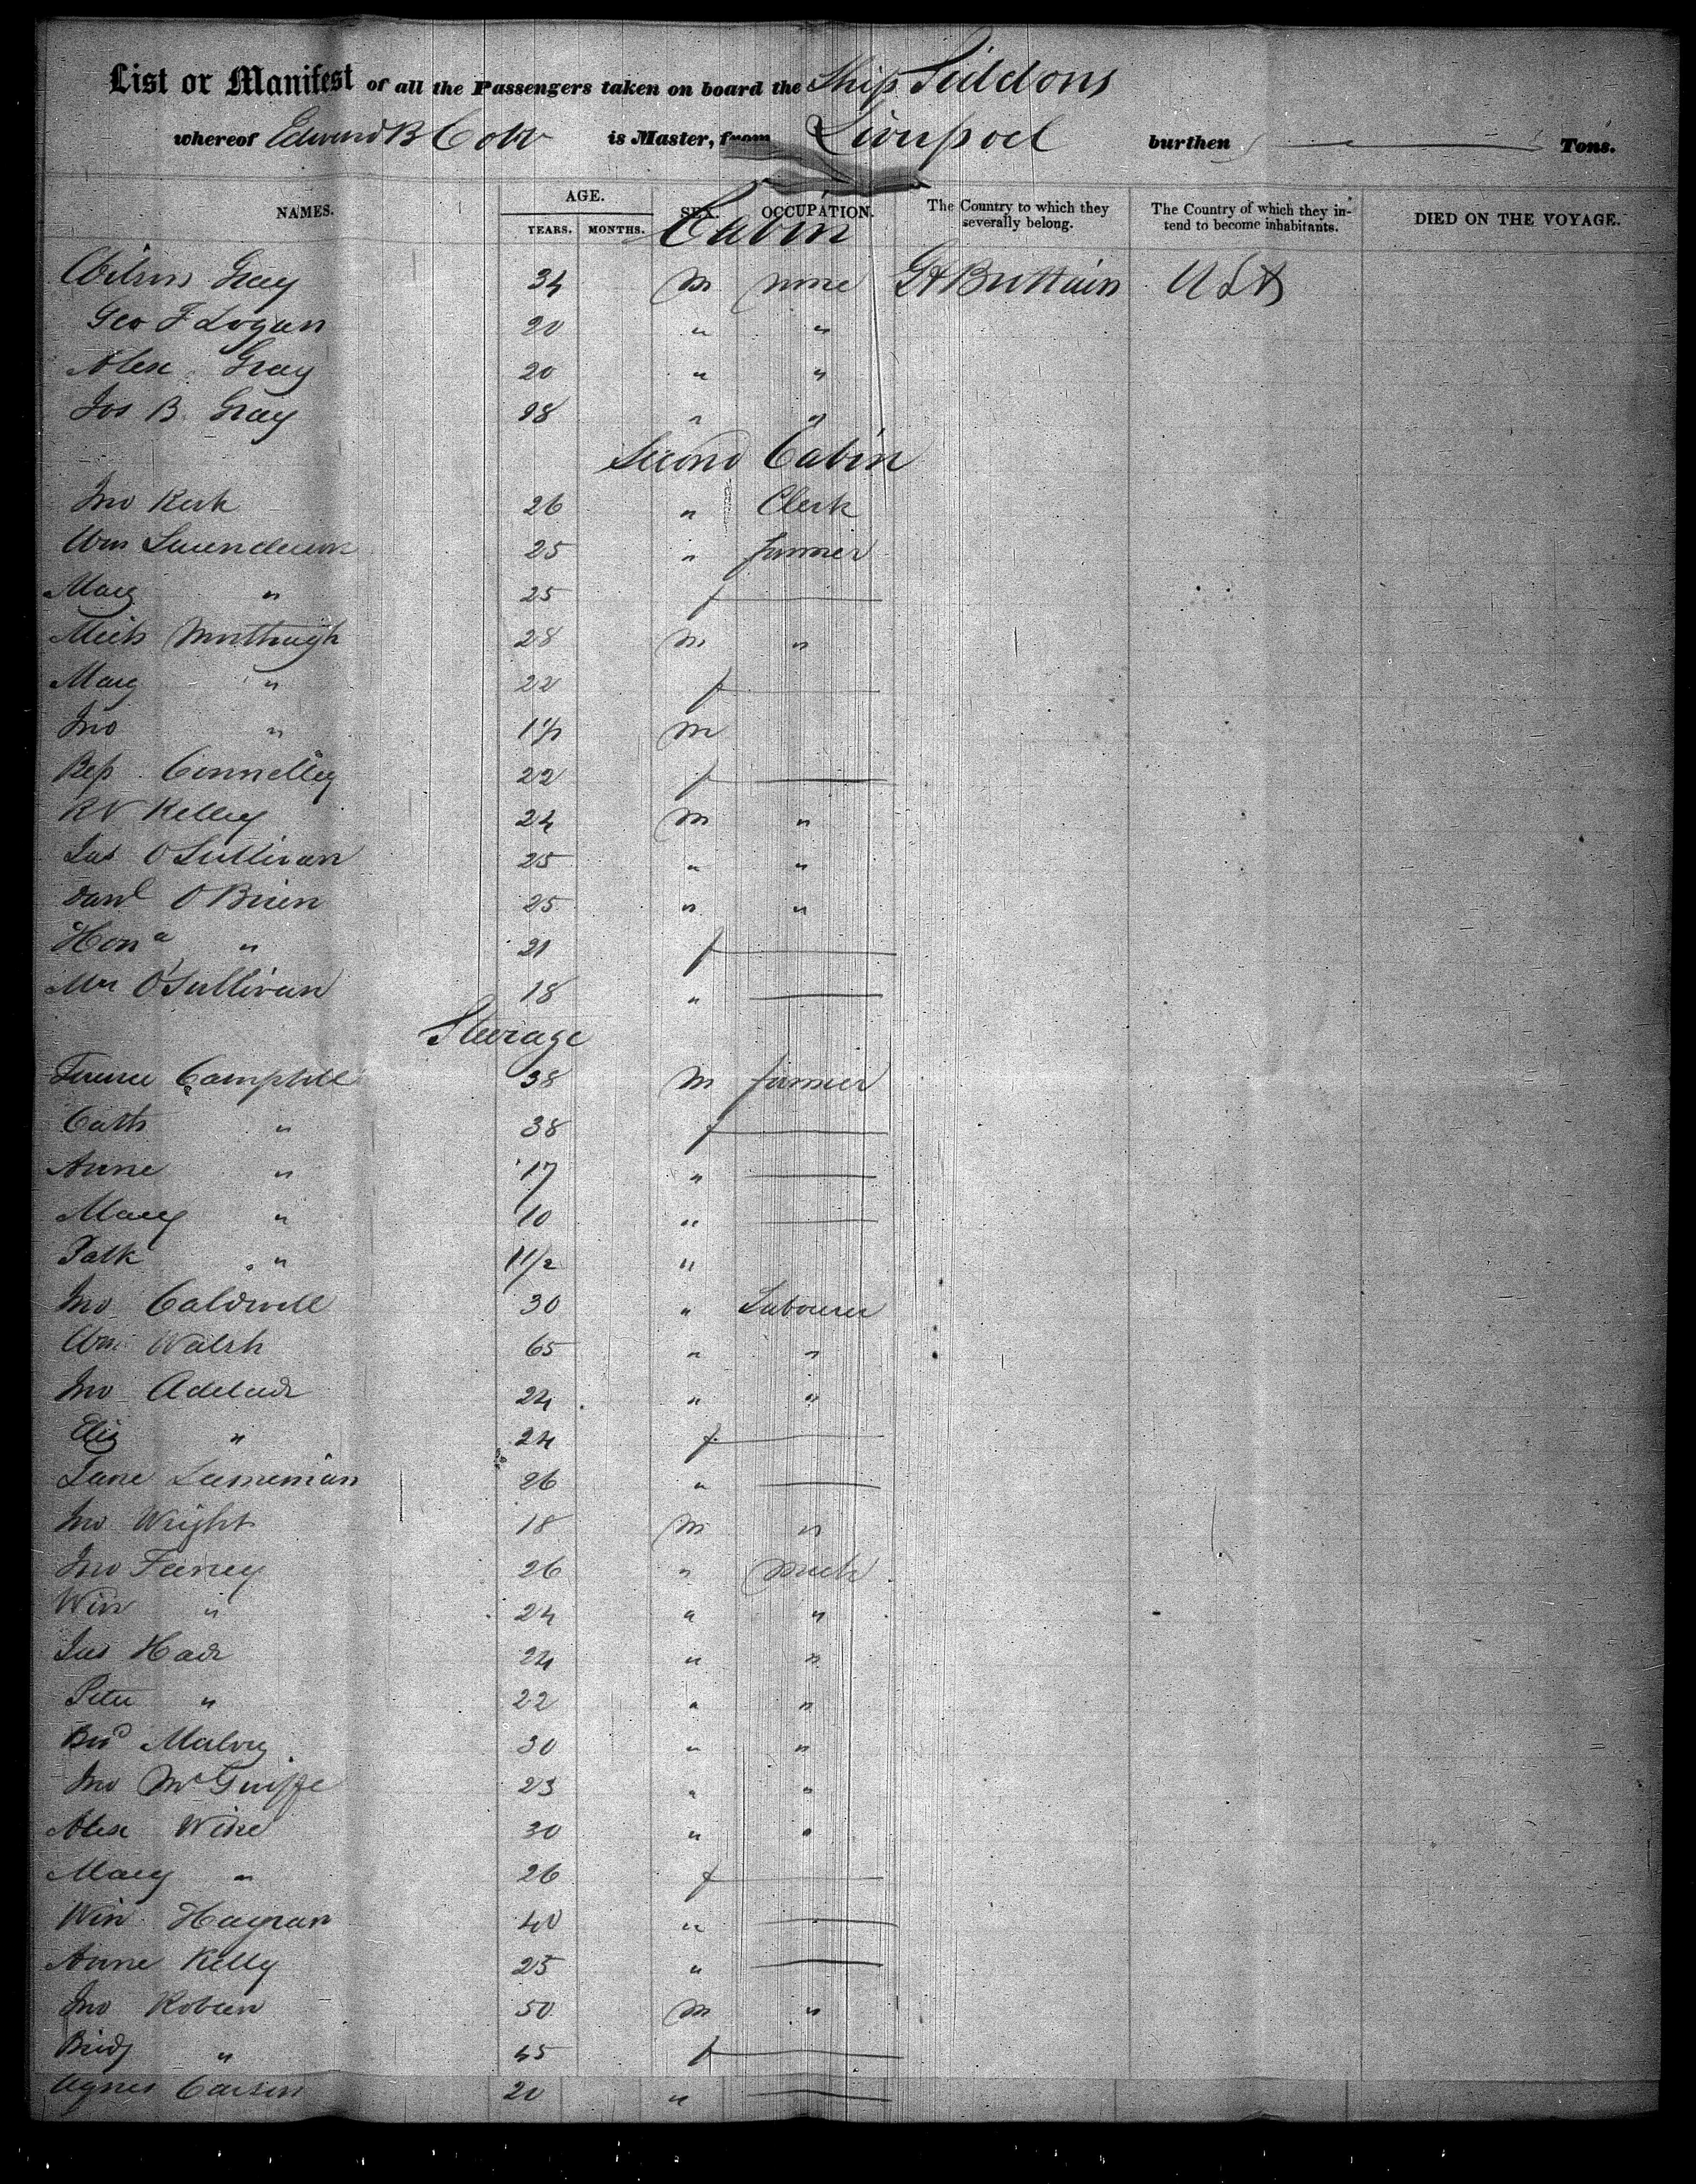 List or Manifest of all the Passengers taken on board the Ship Siddons
whereof Edward B Cobb is Master, from Liverpool burthen Tons.
NAMES. AGE. YEARS. MONTHS. SEX. OCCUPATION. The Country to which they severally belong. The Country of which they intend to become inhabitants. DIED ON THE VOYAGE.
Cabin
Wilson Gray 34 m none Gt Brittain USA
Geo F Logan 20 " "
Alex Gray 20 " "
Jos B Gray 98 " "
Second Cabin
Jno Kerk 26 " Clerk
Wm Saunderson 25 " farmer
Marg " 25 f
Mich Murthaugh 28 m "
Marg " 22 f
Jno " m
Connelley 22 f
Kelley 24 m "
Jas O Sullivan 25 " "
Danl O Brien 25 " "
Hona " 21 f
O'Sullivan 18 "
Steerage
Terence Campbell 38 m farmer
Cath " 38 f
Anne " 17 "
Mary " 10 "
Patk " 11/2 "
Jno Caldwell 30 " Labourer
Wm Walsh 65 " "
Jno Adelade 24 " "
Eliz " 24 f
Jane 26 "
Jno Wright 18 m "
Jno 26 " mech
Win " 24 " "
Jas Hade 24 " "
Peter " 22 " "
30 " "
Jno 23 " "
Alex Wise 30 " "
Mary " 26 f
Win 40 "
Anne Kelly 25 "
Jno 50 m "
Bridj " 45 f
Agnes Carson 20 "